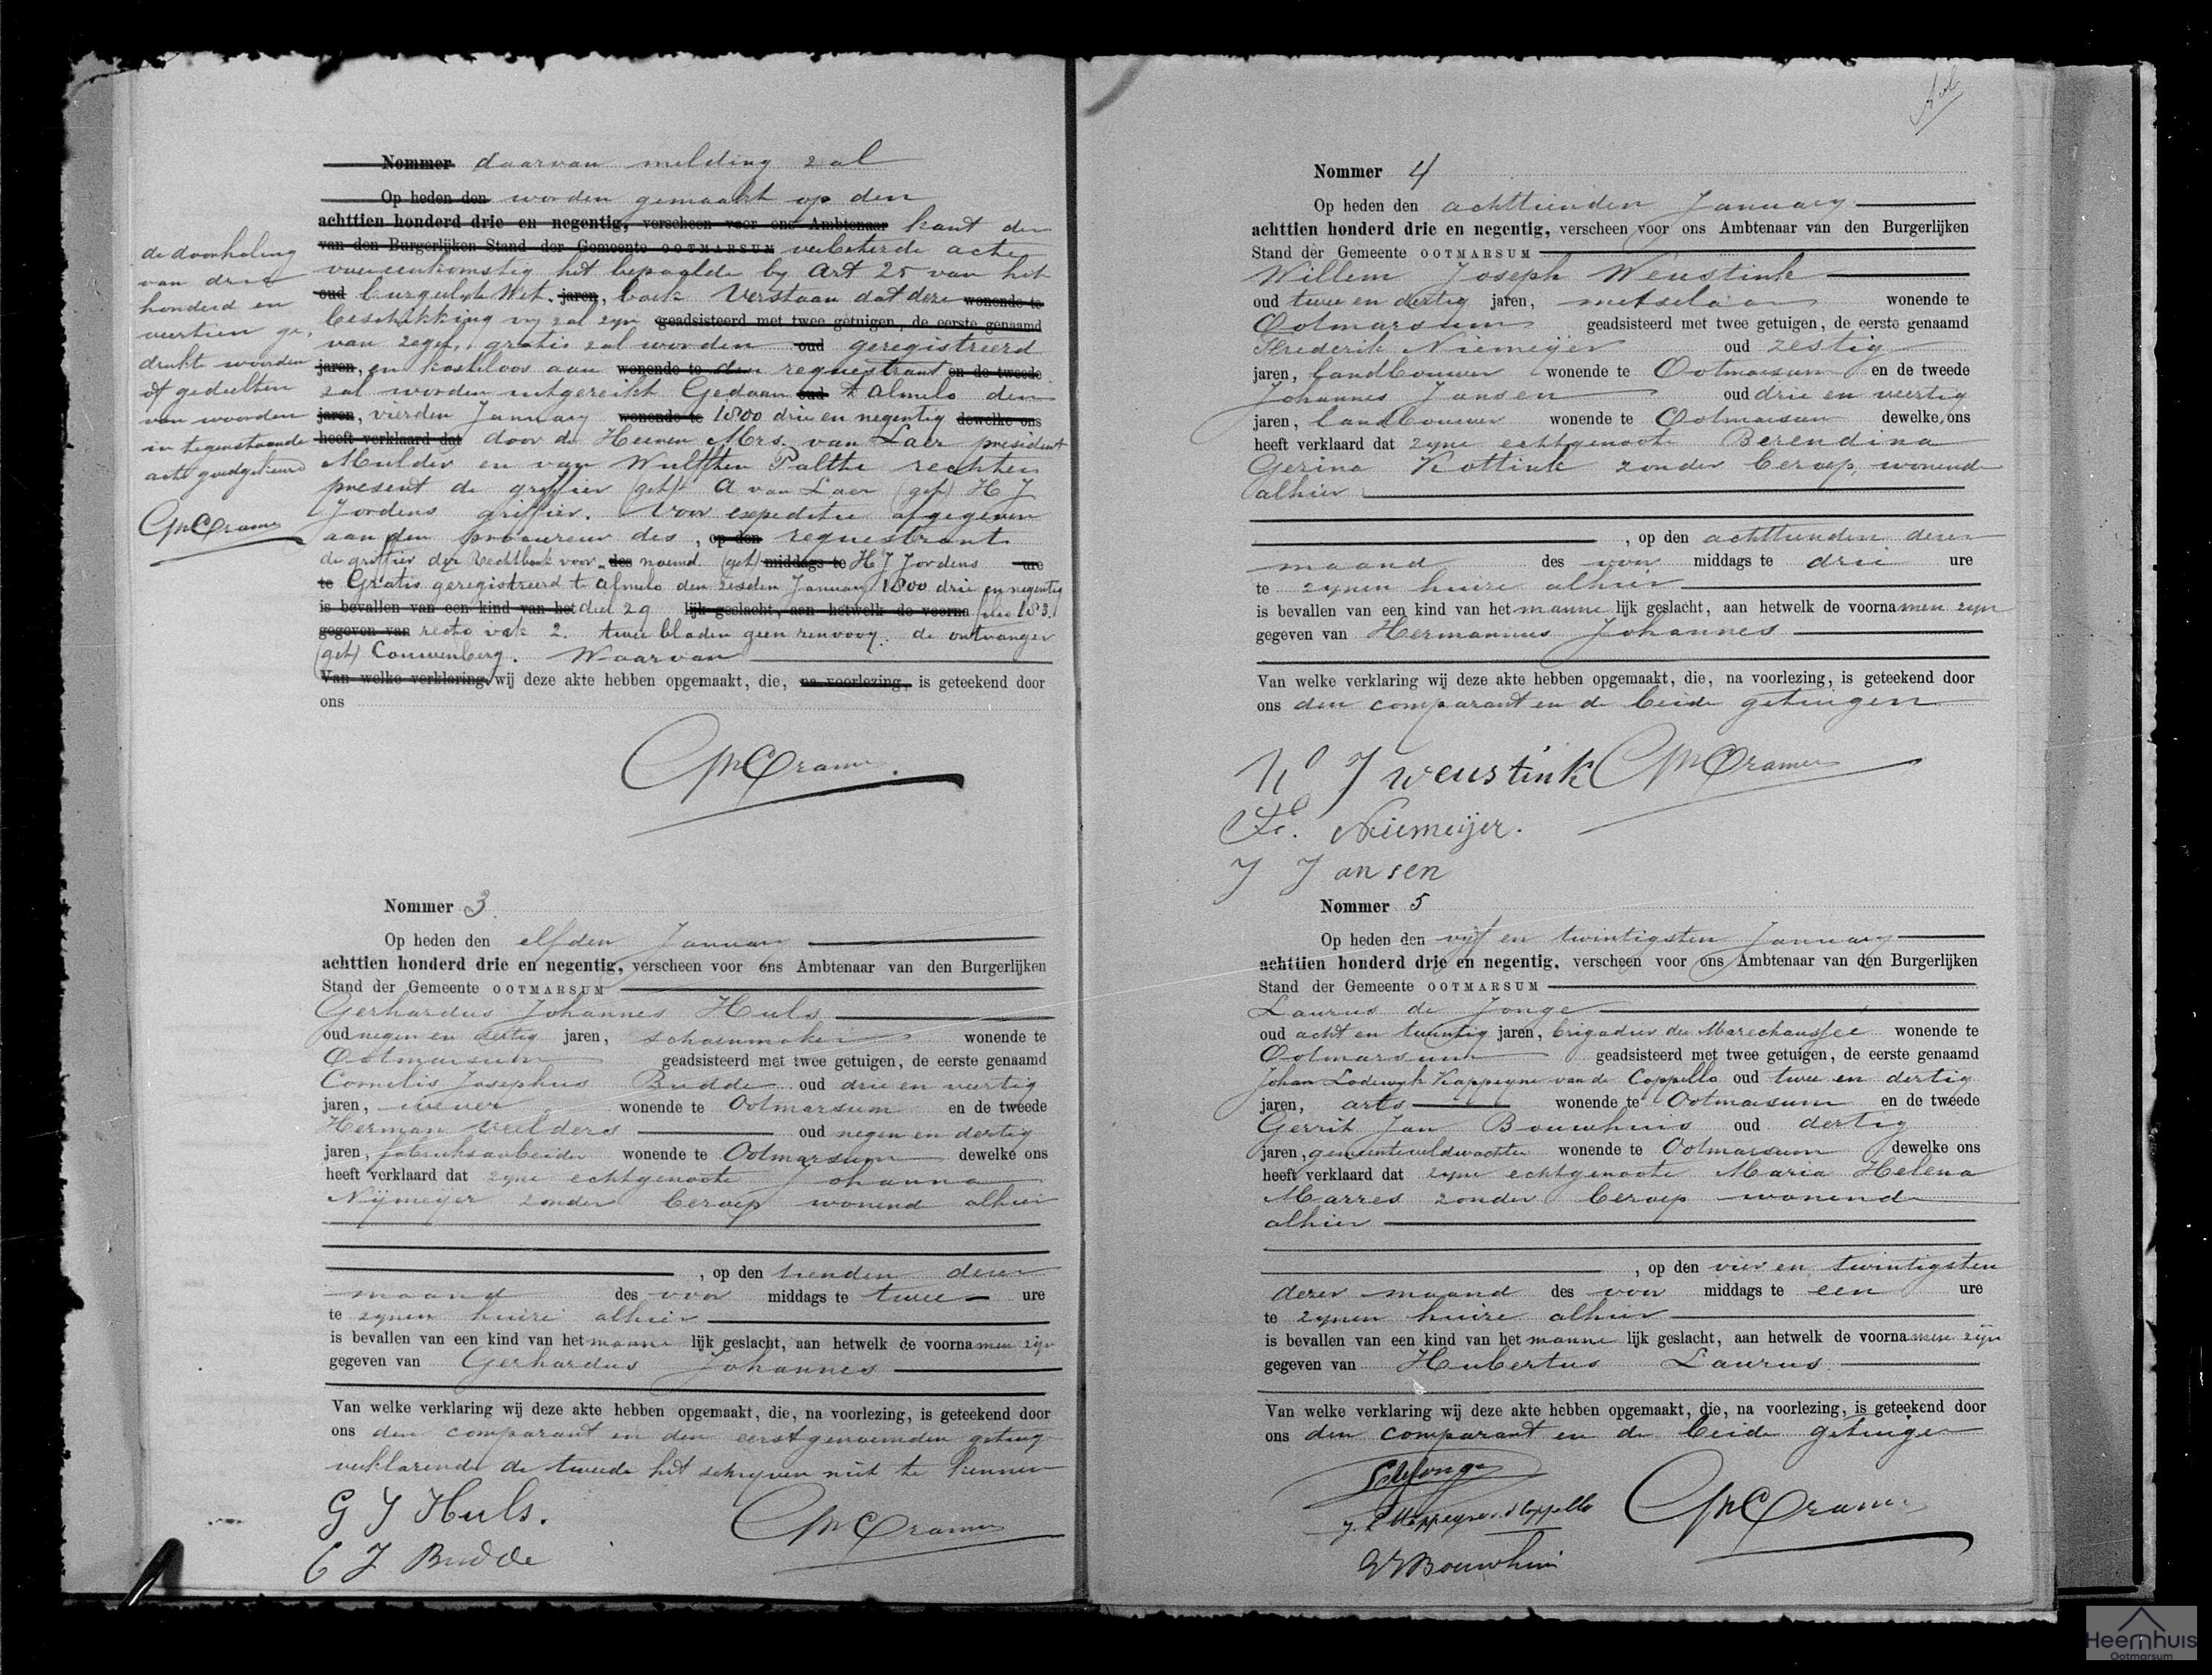 Nommer daarvan melding zal
Op heden den worden gemaakt op den
achttien honderd drie en negentig, verscheen voor ons Ambtenaar kant der
van den Burgerlijken Stand der Gemeente OOTMARSUM verbeterde acte
overeenkomstig het bepaalde by Art 25 van het
oud burgerlyk Wet. jaren, boek Verstaan dat deze wonende te
beschikking vry zal zyn geadsisteerd met twee getuigen, de eerste genaamd
van zegel, gratis zal worden oud geregistreerd
jaren, en kosteloos aan wonende te den requestrant en de tweede
zal worden uitgereikt Gedaan oud te Almelo den
jaren, vierden January wonende te 1800 drie en negentig dewelke ons
heeft verklaard dat door de Heeren Mrs. van Laer president
Mulder en van Wulfften Palthe rechters
present de griffier (get) A van Laer (get) H J
Jordens griffier. Voor expeditie afgegeven
aan den procureur des, op den requestrant
de griffier der Rechtbank voor des noemd. (get) middags te H J Jordens ure
te Gratis geregistreerd te Almelo den zesden January 1800 drie en negentig
is bevallen van een kind van het deel 29 lijk geslacht, aan hetwelk de voorna folio 183.
gegeven van recto vak 2. twee bladen geen renvooy. de ontvanger
(get) Couwenberg. Waarvan
Van welke verklaring wij deze akte hebben opgemaakt, die, na voorlezing, is geteekend door
ons
GMCCramer
de doorhaling
van drie
honderd en
veertien ge,
drukte woorden
of gedeelten
van woorden
in tegenstaande
acte goedgekeurd
GMCCramer
Nommer 3.
Op heden den elfden January
achttien honderd drie en negentig, verscheen voor ons Ambtenaar van den Burgerlijken
Stand der Gemeente OOTMARSUM
Gerhardus Johannes Huls
oud negen en dertig jaren, schoenmaker wonende te
Ootmarsum geadsisteerd met twee getuigen, de eerste genaamd
Cornelis Josephus Budde oud drie en veertig
jaren, wever wonende te Ootmarsum en de tweede
Herman Veelders oud negen en dertig
jaren, fabrieksarbeider wonende te Ootmarsum dewelke ons
heeft verklaard dat zyne echtgenoote Johanna
Nijmeijer zonder beroep wonende alhier
, op den tienden dezer
maand des voor middags te twee ure
te zynen huize alhier
is bevallen van een kind van het manne lijk geslacht, aan hetwelk de voornamen zijn
gegeven van Gerhardus Johannes
Van welke verklaring wij deze akte hebben opgemaakt, die, na voorlezing, is geteekend door
ons den comparant en den eerstgenoemden getuig
verklarende de tweede het schryven niet te kennen
G J Huls.
GMCCramer
C J Budde
Nommer 4
Op heden den achttienden January
achttien honderd drie en negentig, verscheen voor ons Ambtenaar van den Burgerlijken
Stand der Gemeente OOTMARSUM
Willem Joseph Weustink
oud twee en dertig jaren, metselaar wonende te
Ootmarsum geadsisteerd met twee getuigen, de eerste genaamd
Frederik Niemeijer oud zestig
jaren, landbouwer wonende te Ootmarsum en de tweede
Johannes Jansen oud drie en veertig
jaren, landbouwer wonende te Ootmarsum dewelke ons
heeft verklaard dat zyne echtgenoote Berendina
Gerina Kottink zonder beroep, wonende
alhier
, op den achttienden dezer
maand des voor middags te drie ure
te zynen huize alhier
is bevallen van een kind van het manne lijk geslacht, aan hetwelk de voornamen zijn
gegeven van Hermannus Johannes
Van welke verklaring wij deze akte hebben opgemaakt, die, na voorlezing, is geteekend door
ons den comparant en de beide getuigen
W J Weustink GMCCramer
Fr. Niemeijer.
J Jansen
Nommer 5
Op heden den vijf en twintigsten January
achttien honderd drie en negentig, verscheen voor ons Ambtenaar van den Burgerlijken
Stand der Gemeente OOTMARSUM
Laurus de Jonge
oud acht en twintig jaren, brigadier der Marechaussée wonende te
Ootmarsum geadsisteerd met twee getuigen, de eerste genaamd
Johan Lodewyk Kappeyne van de Coppello oud twee en dertig
jaren, arts wonende te Ootmarsum en de tweede
Gerrit Jan Bouwhuis oud dertig
jaren, gemeenteveldwachter wonende te Ootmarsum dewelke ons
heeft verklaard dat zyne echtgenoote Maria Helena
Marres zonder beroep wonende
alhier
, op den vier en twintigsten
dezer maand des voor middags te een ure
te zynen huize alhier
is bevallen van een kind van het manne lijk geslacht, aan hetwelk de voornamen zijn
gegeven van Hubertus Laurus.
Van welke verklaring wij deze akte hebben opgemaakt, die, na voorlezing, is geteekend door
ons den comparant en de beide getuigen
L de Jonge
J. L Kappeyne v. d Coppello GMCCramer
G J Bouwhuis
Heemhuis
Ootmarsum